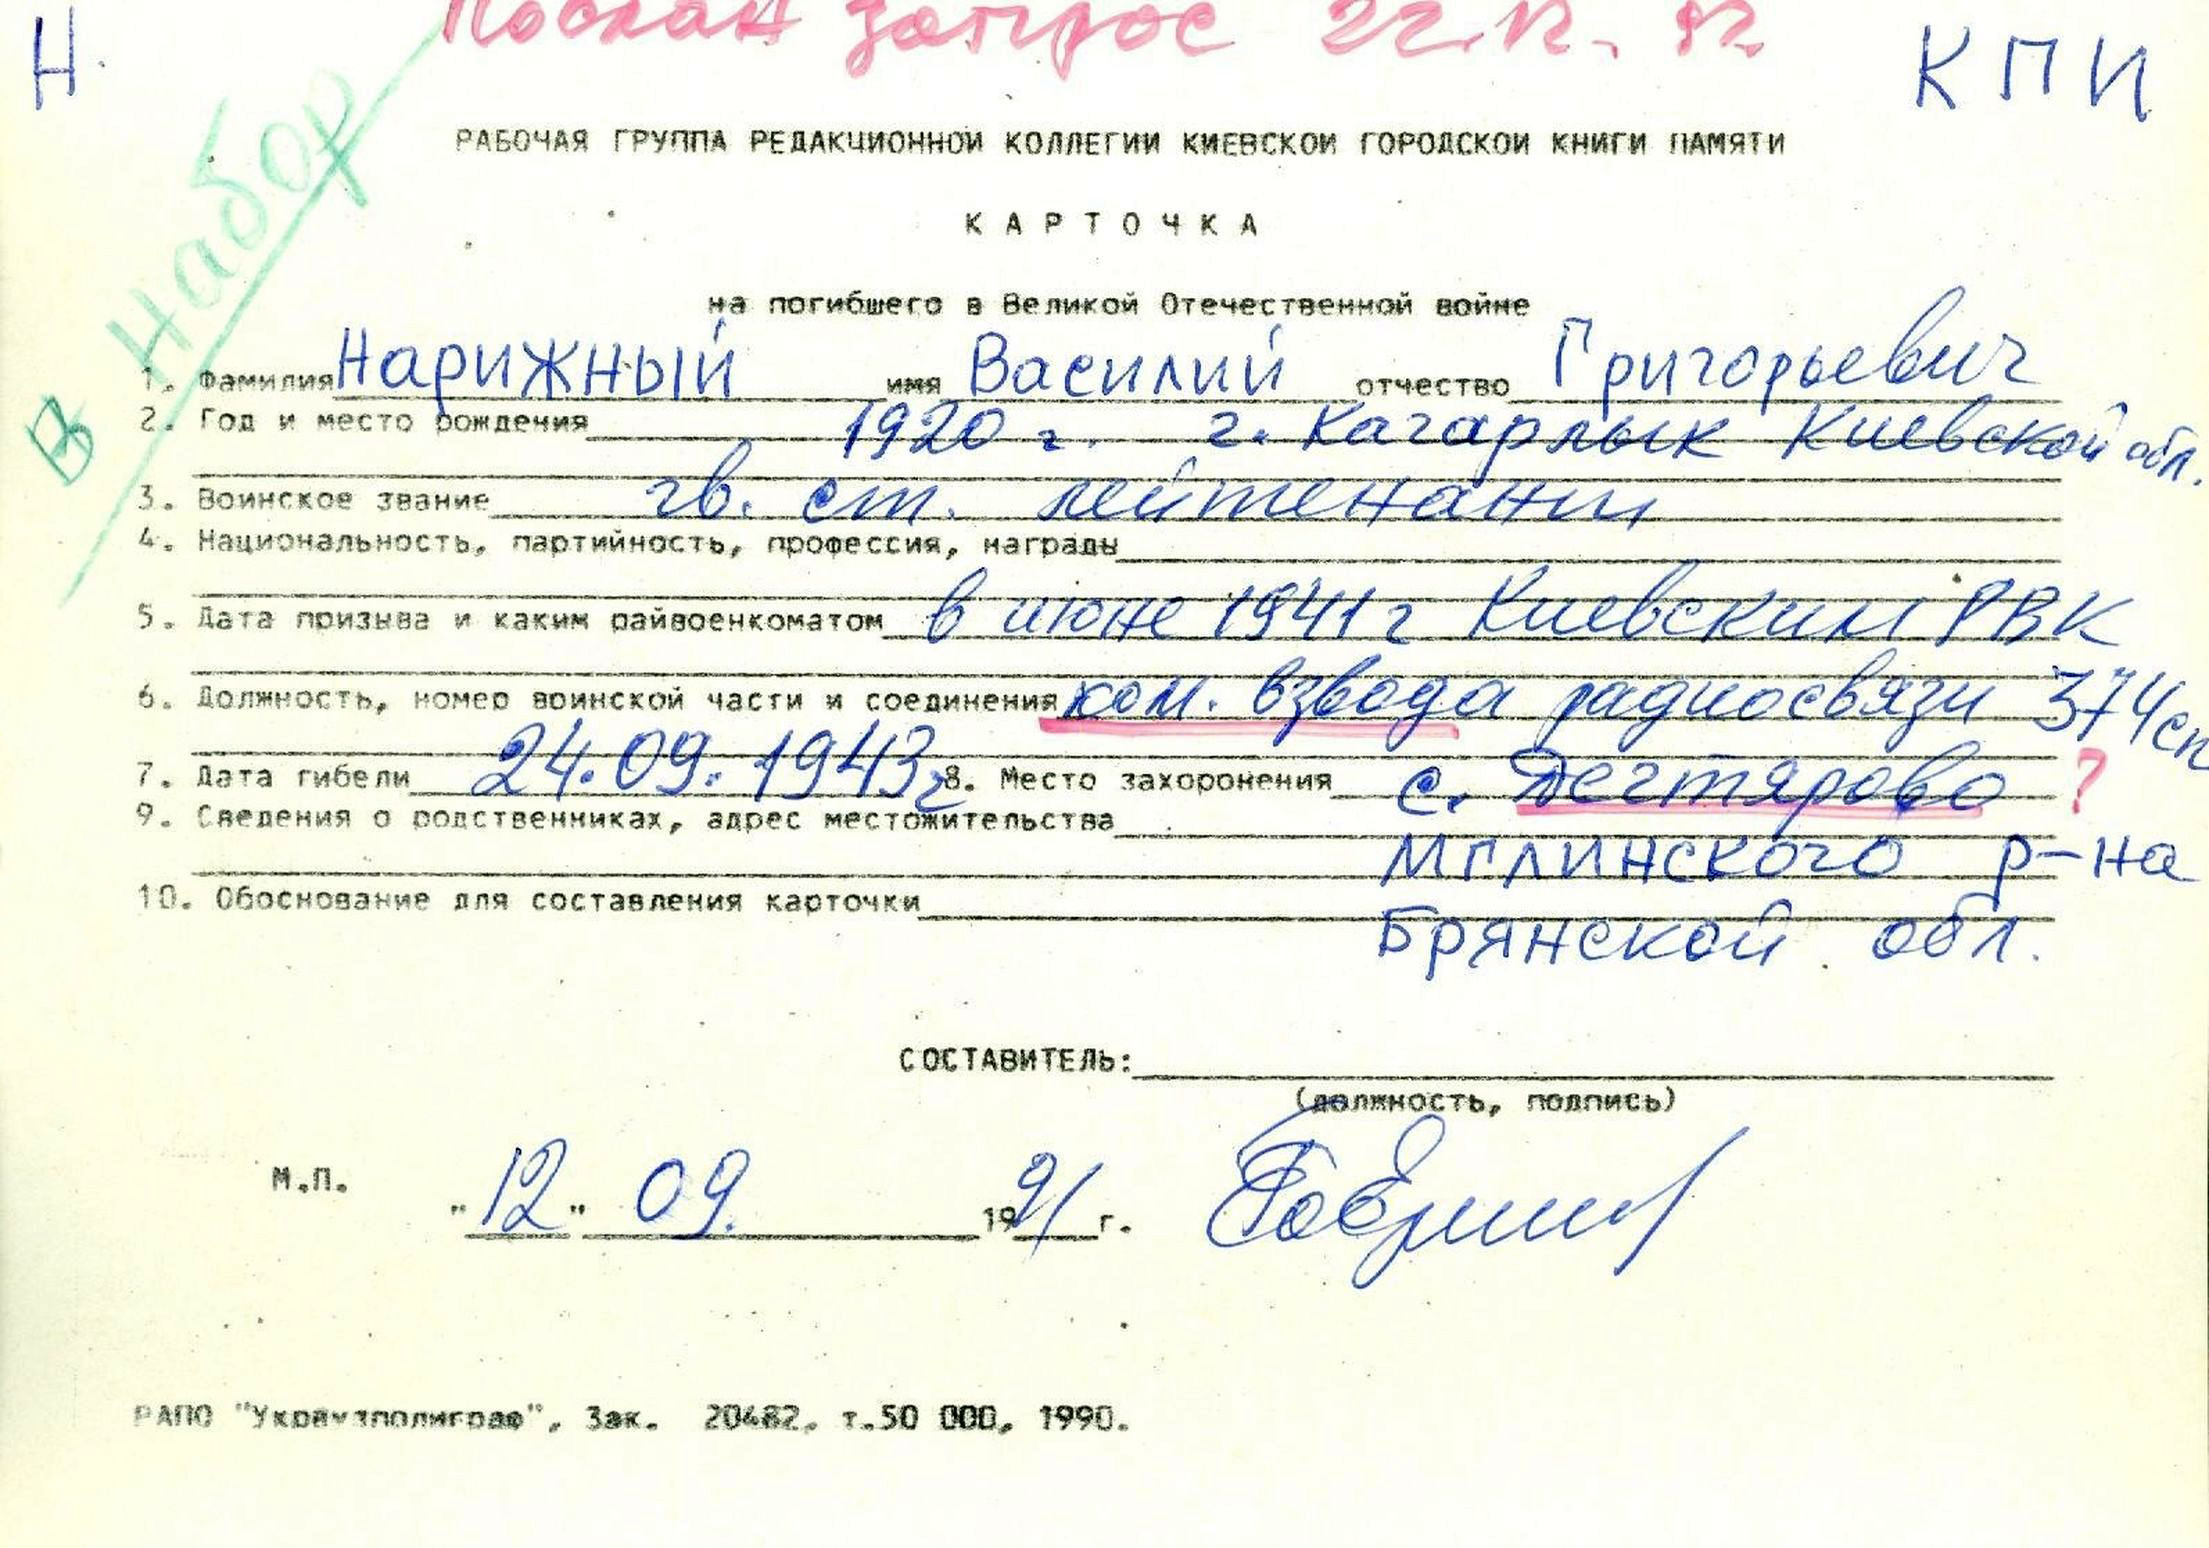 Н. Послан запрос 22.12. 92. КПИ
В Набор
РАБОЧАЯ ГРУППА РЕДАКЦИОННОЙ КОЛЛЕГИИ КИЕВСКОЙ ГОРОДСКОЙ КНИГИ ПАМЯТИ
КАРТОЧКА
на погибшего в Великой Отечественной войне
1. Фамилия Нарижный имя Василий отчество Григорьевич
2. Год и место рождения 1920 г. г. Кагарлык Киевской обл.
3. Воинское звание гв. ст. лейтенант
4. Национальность, партийность, профессия, награды
5. Дата призыва и каким райвоенкоматом в июне 1941 г Киевским РВК
6. Должность, номер воинской части и соединения ком. взвода радиосвязи 374 сп
7. Дата гибели 24.09.1943г 8. Место захоронения с. Дегтярово ?
9. Сведения о родственниках, адрес местожительства
Мглинского р-на
10. Обоснование для составления карточки
Брянской обл.
СОСТАВИТЕЛЬ:
(должность, подпись)
М.П. "12" 09. 1991 г.
РАПО "Укрвузполиграф", Зак. 20482, т.50 000, 1990.